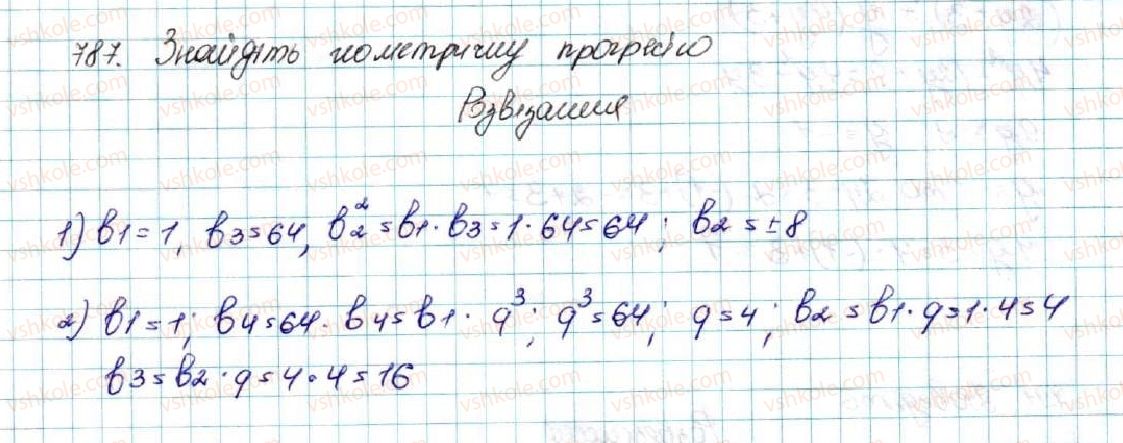 787. Знайдіть геометричну прогресію
Розвізання
1) b1 = 1, b3 = 64, b2² = b1 · b3 = 1 · 64 = 64; b2 = ±8
2) b1 = 1; b4 = 64. b4 = b1 · q³; q³ = 64; q = 4; b2 = b1 · q = 1 · 4 = 4
b3 = b2 · q = 4 · 4 = 16